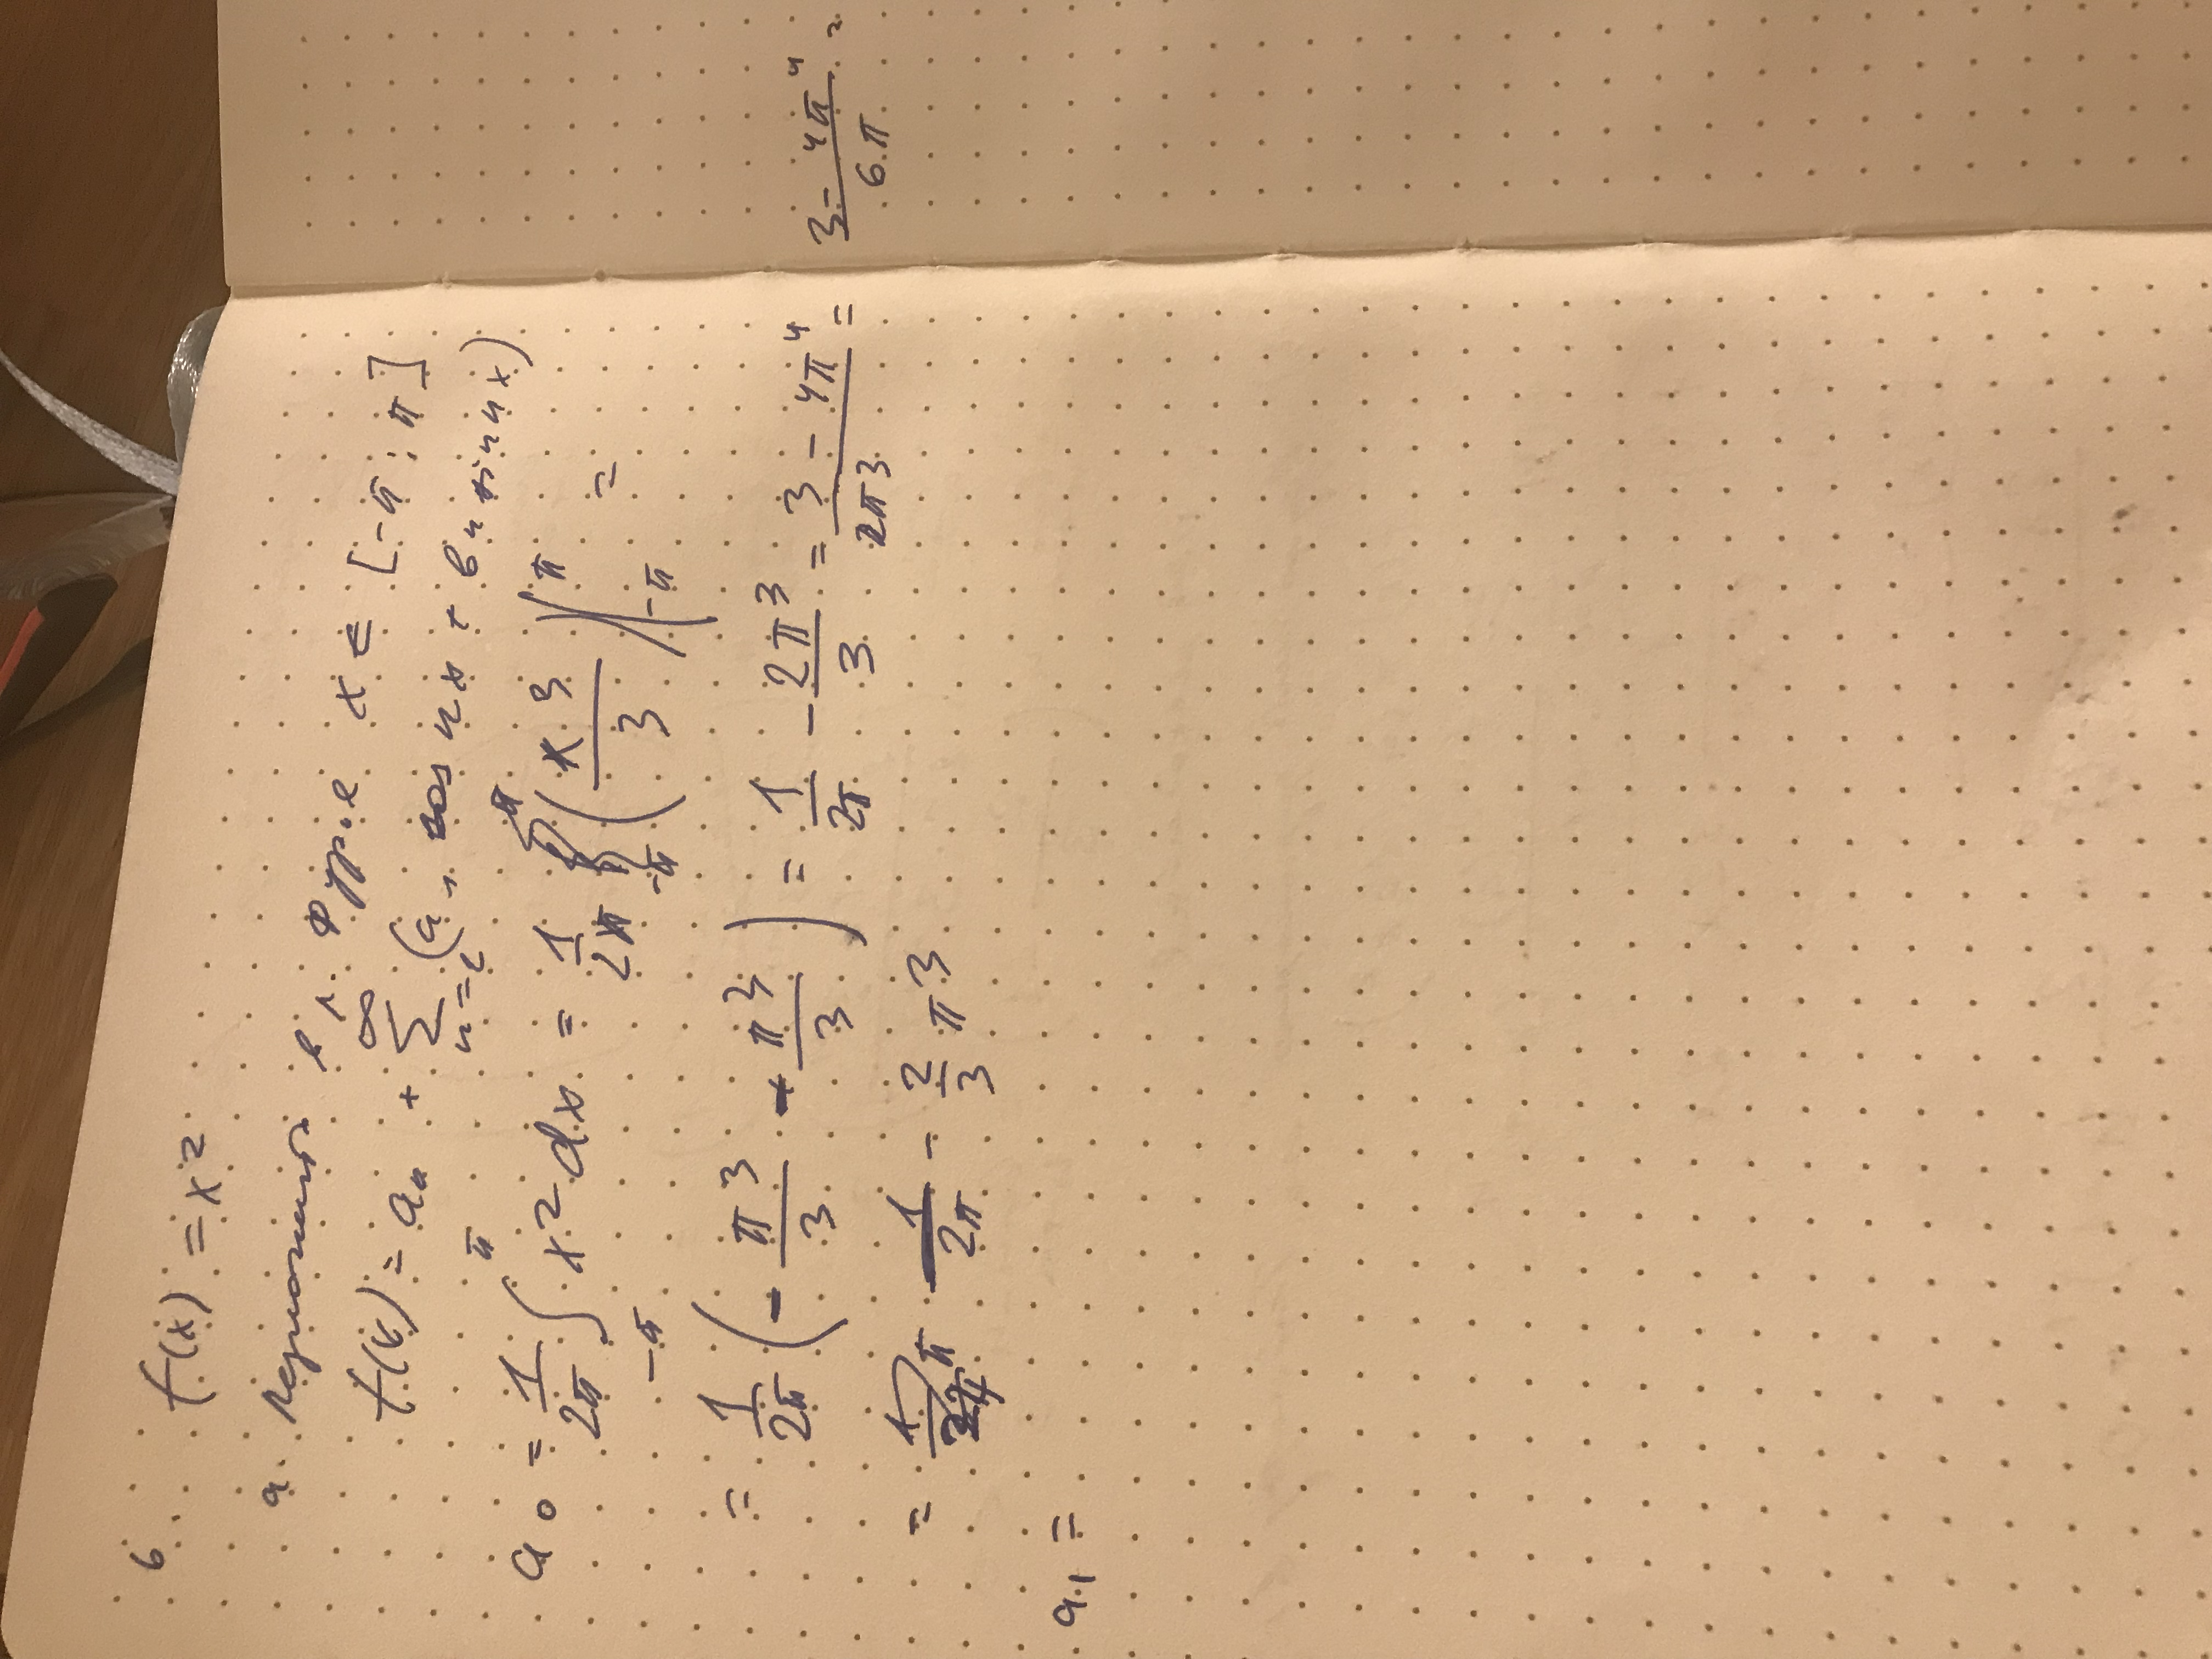 6. f(x) = x²
a. Разложить в р. Фурье x ∈ [-π; π]
f(x) = a₀ + ∑ₙ₌₁^∞ (aₙ cos nx + bₙ sin nx)
a₀ = 1/2π ∫₋π^π x² dx = 1/2π (x³/3)|₋π^π =
= 1/2π (- π³/3 - π³/3) = 1/2π - 2π³/3 = 3 - 4π⁴/2π3 = 3 - 4π⁴/6π =
= 1/2π - 2/3 π³
a₁ =